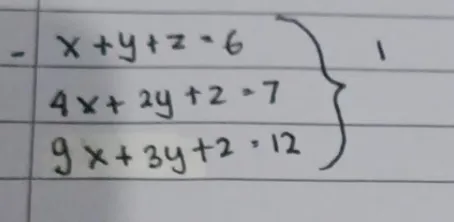 - x + y + z = 6 } 1
4x + 2y + z = 7
9x + 3y + z = 12